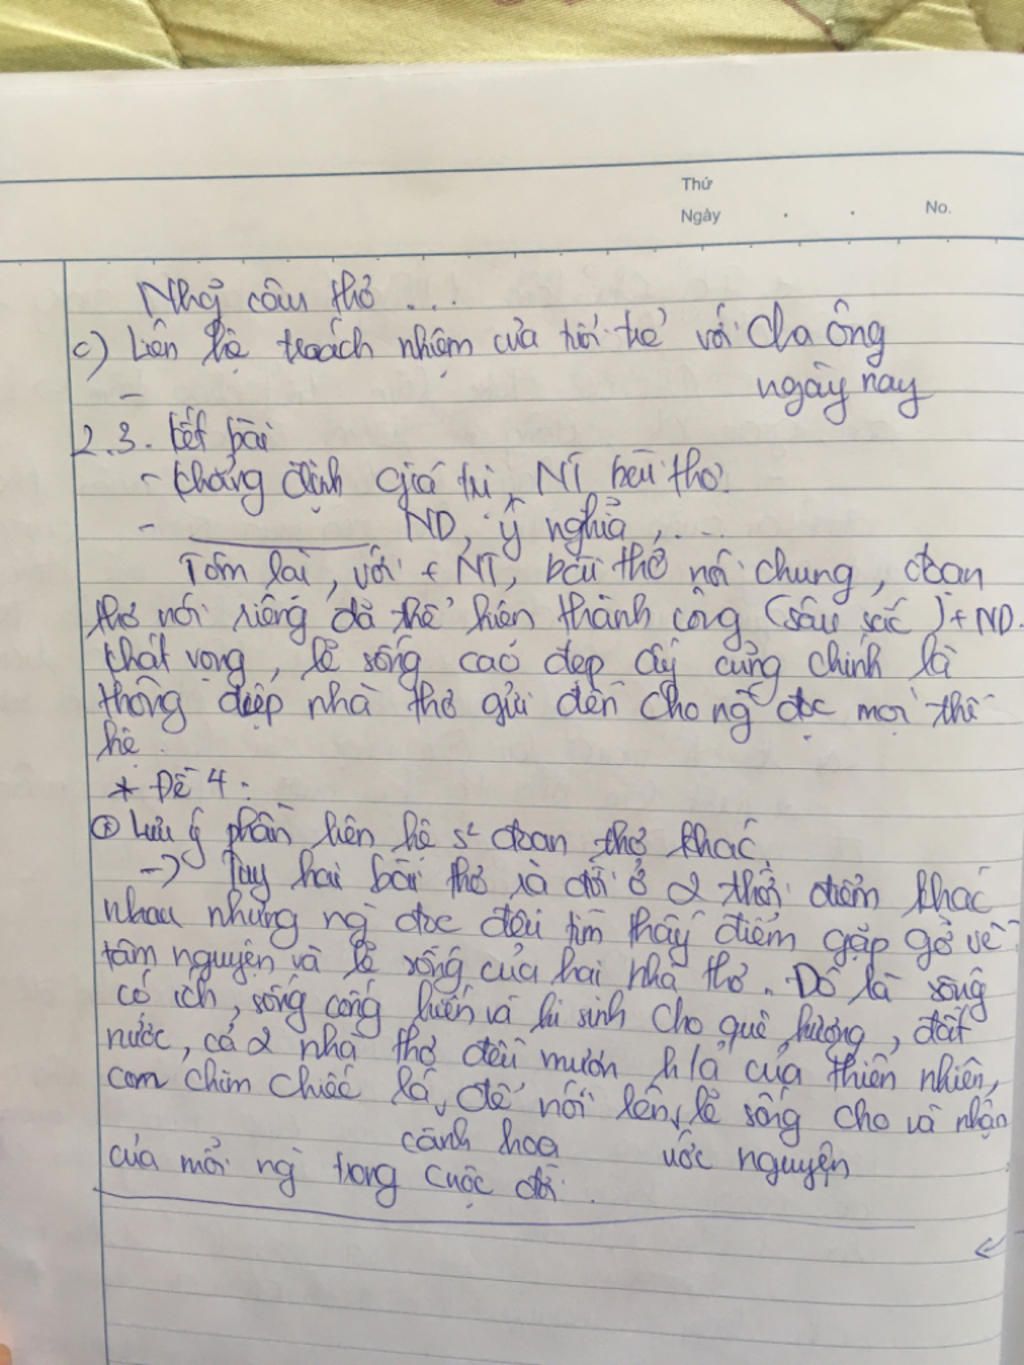 Thứ
Ngày . . No.
Nhớ câu thơ ...
c) Liên hệ trách nhiệm của tuổi trẻ với cha ông
ngày nay
-
2.3. Kết bài
- Khẳng định giá trị, NT bài thơ.
- ND, ý nghĩa, ...
Tóm lại, với + NT, bài thơ nói chung, đoạn
thơ nói riêng đã thể hiện thành công (sâu sắc) + ND.
Khát vọng, lẽ sống cao đẹp ấy cũng chính là
thông điệp nhà thơ gửi đến cho ng đọc mọi thế
hệ.
* Đề 4:
Lưu ý phần liên hệ s² đoạn thơ khác.
-> Tuy hai bài thơ ra đời ở 2 thời điểm khác
nhau nhưng ng đọc đều tìm thấy điểm gặp gỡ về
tâm nguyện và lẽ sống của hai nhà thơ. Đó là sống
có ích, sống cống hiến và hi sinh cho quê hương, đất
nước, cả 2 nhà thơ đều mượn h/ả của thiên nhiên,
con chim chiếc lá, để nói lên lẽ sống cho và nhận
cành hoa ước nguyện
của mỗi ng trong cuộc đời.